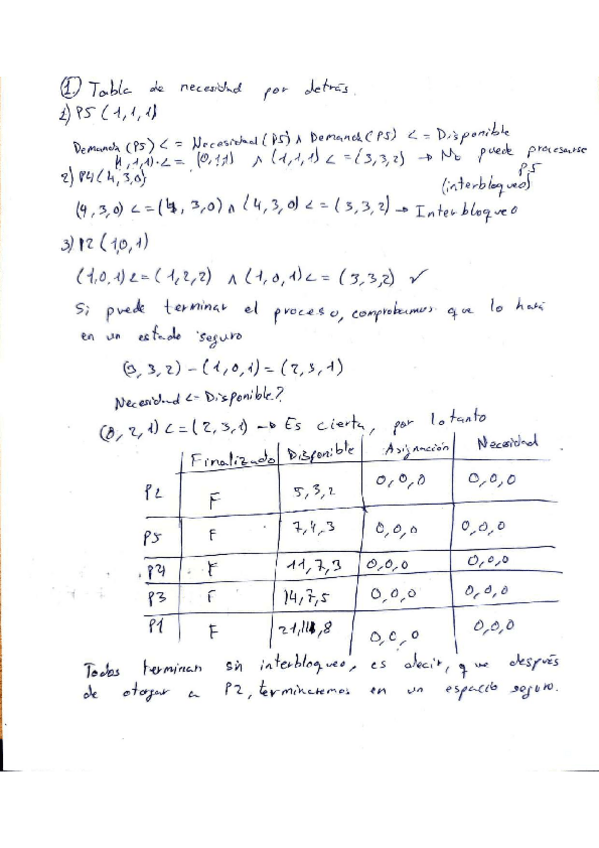 ① Tabla de necesidad por detrás.
1) P5 (1,1,1)
Demanda (P5) <= Necesidad (P5) ∧ Demanda (P5) <= Disponible
(1,1,1) <= (0,1,1) ∧ (1,1,1) <= (3,3,2) → No puede procesarse
P5
(interbloqueo)
2) P4 (4,3,0)
(4,3,0) <= (4,3,0) ∧ (4,3,0) <= (3,3,2) → Interbloqueo
3) P2 (1,0,1)
(1,0,1) <= (1,2,2) ∧ (1,0,1) <= (3,3,2) ✓
Si puede terminar el proceso, comprobamos que lo hará
en un estado seguro
(3,3,2) - (1,0,1) = (2,3,1)
Necesidad <= Disponible?
(0,2,1) <= (2,3,1) → Es cierta, por lo tanto
Finalizado Disponible Asignación Necesidad
P2 F 5,3,2 0,0,0 0,0,0
P5 F 7,4,3 0,0,0 0,0,0
P4 F 11,7,3 0,0,0 0,0,0
P3 F 14,7,5 0,0,0 0,0,0
P1 F 0,0,0 0,0,0
Todos terminan sin interbloqueo, es decir, que después
de otorgar a P2, terminaremos en un espacio seguro.